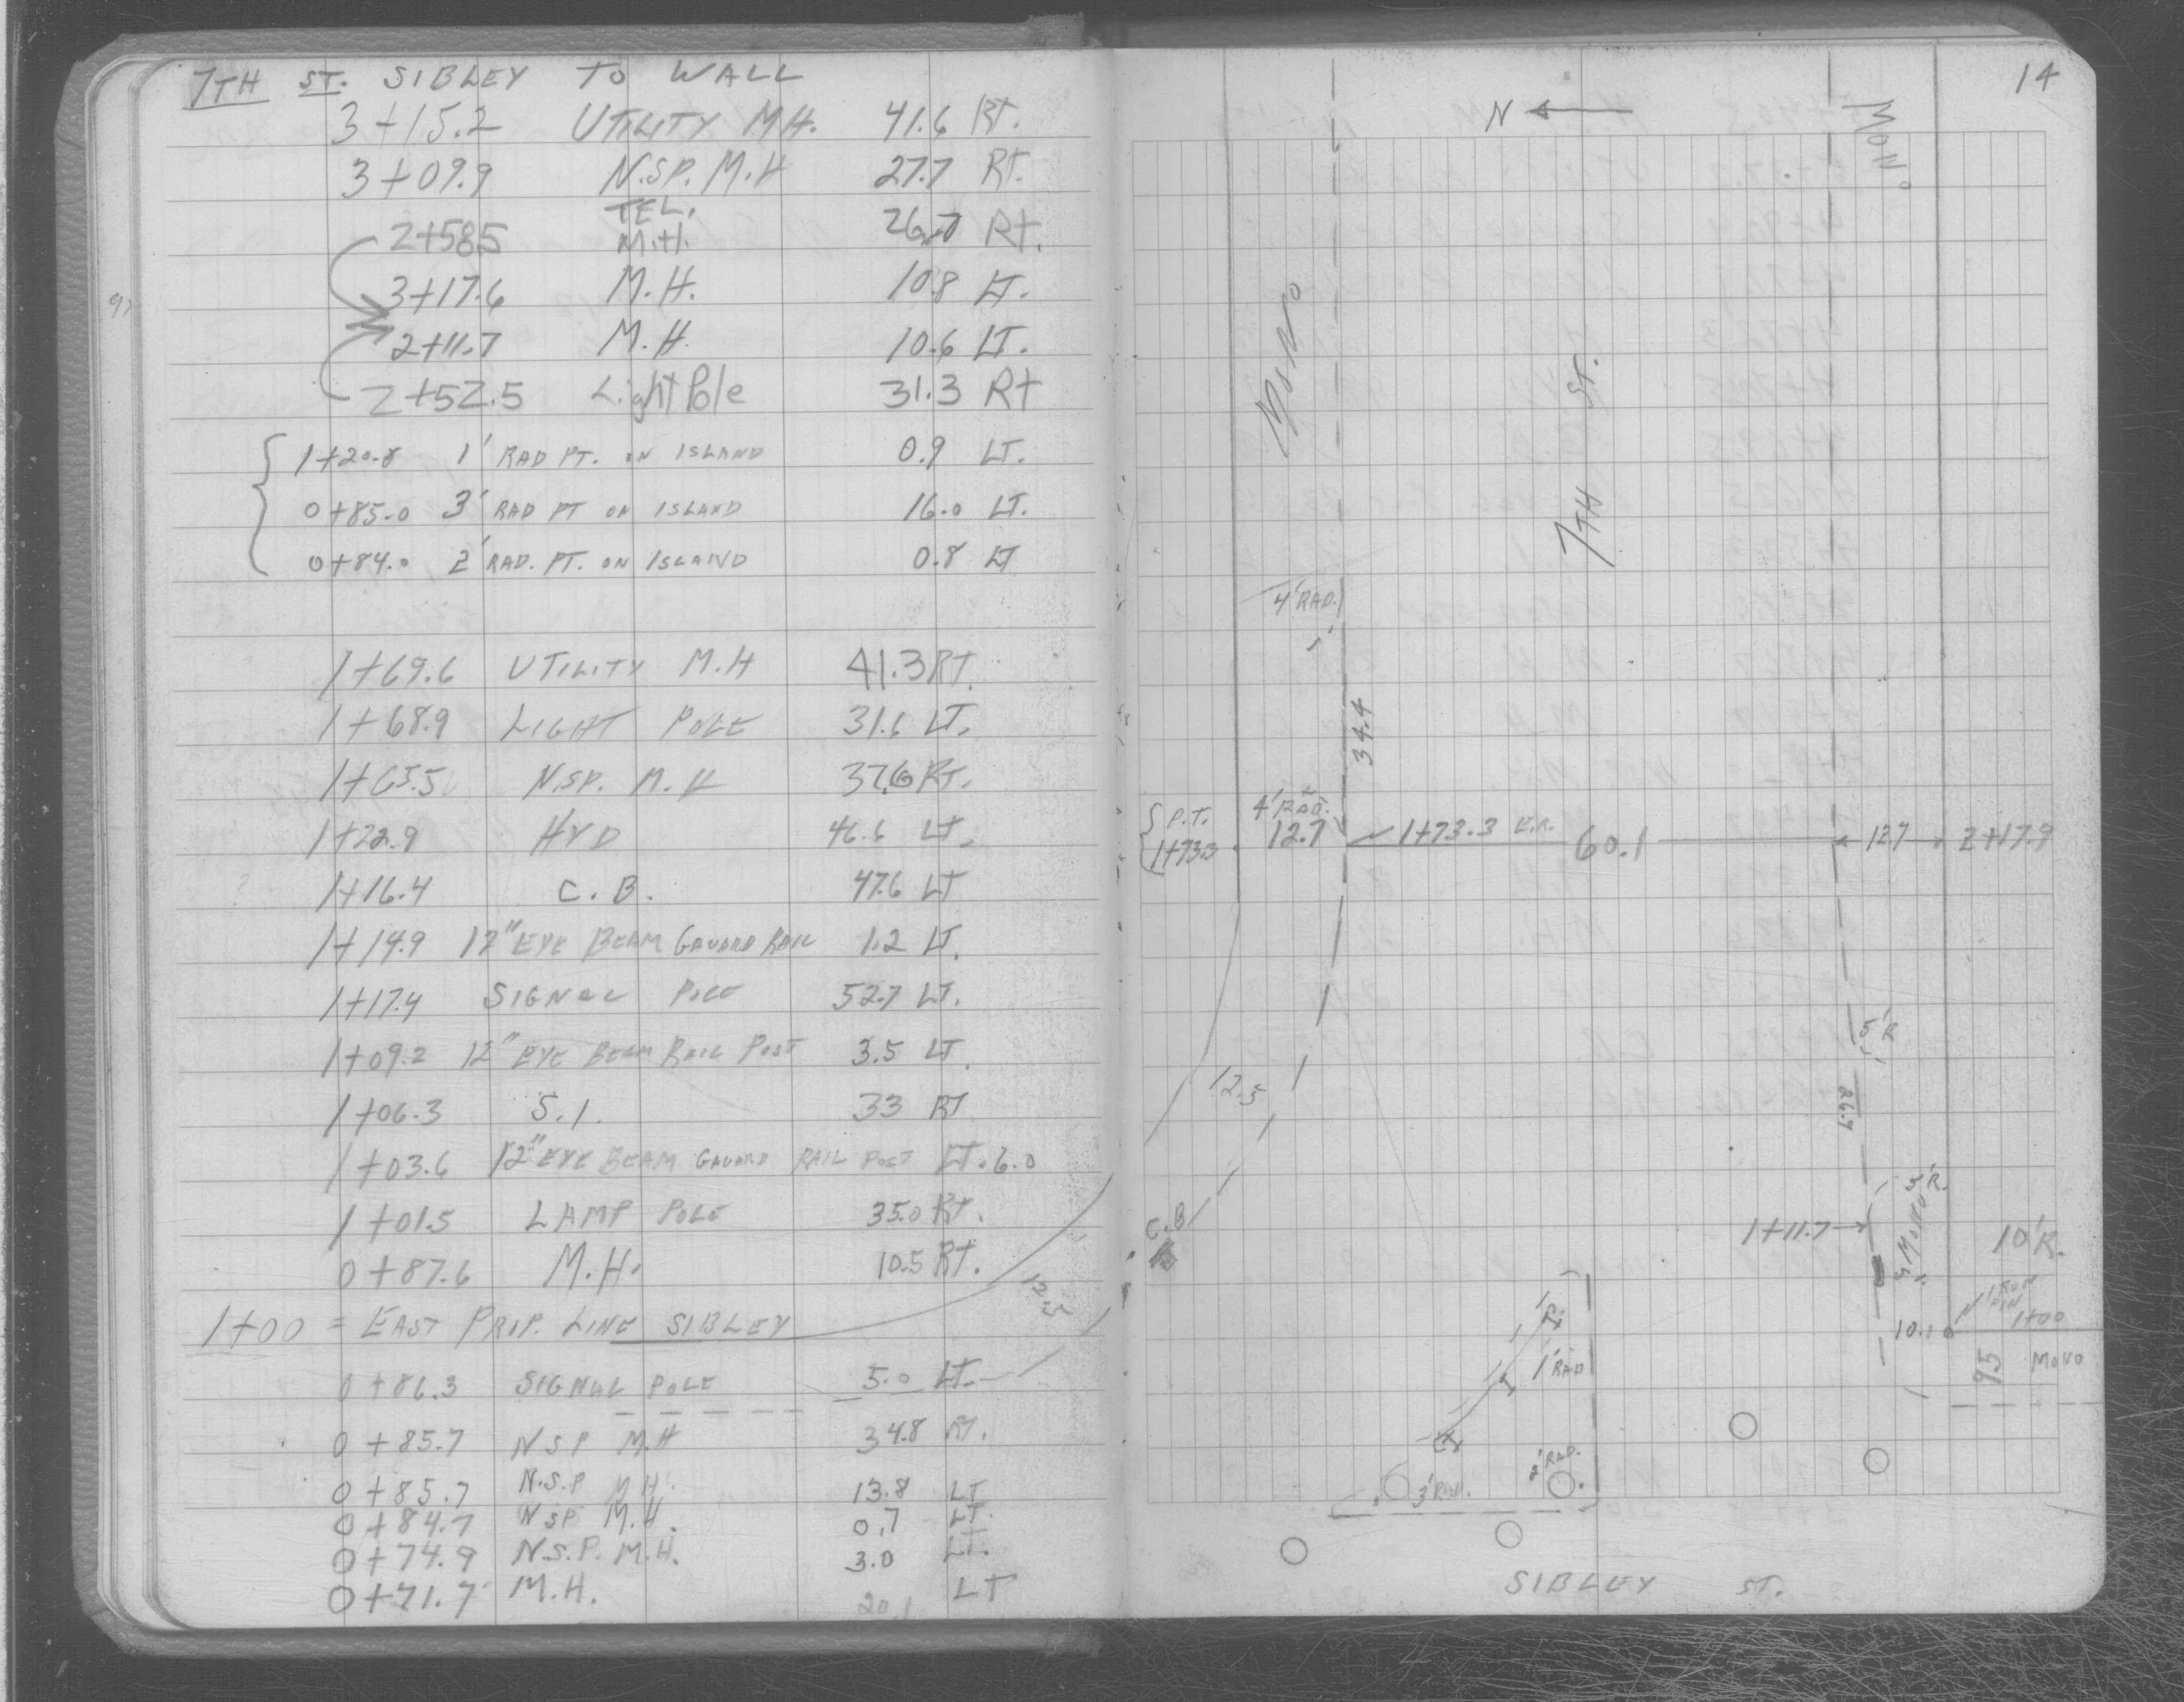 7TH ST. SIBLEY TO WALL
3+15.2 UTILITY M.H. 41.6 Rt.
3+09.9 N.S.P. M.H 27.7 Rt.
2+58.5 TEL. M.H. 26.7 Rt.
3+17.6 M.H. 10.8 LT.
2+11.7 M.H. 10.6 LT.
2+52.5 Light Pole 31.3 Rt
1+20.8 1' RAD PT. ON ISLAND 0.9 LT.
0+85.0 3' RAD PT ON ISLAND 16.0 LT.
0+84.0 2' RAD. PT. ON ISLAND 0.8 LT
1+69.6 UTILITY M.H 41.3 RT.
1+68.9 LIGHT POLE 31.6 LT.
1+65.5 N.S.P. M.H 37.6 RT.
1+22.9 HYD 46.6 LT.
1+16.4 C.B. 47.6 LT
1+14.9 12" EYE BEAM GAUARD RAIL 1.2 LT.
1+17.4 SIGNAL POLE 52.7 LT.
1+09.2 12" EYE BEAM RAIL POST 3.5 LT.
1+06.3 S.I. 33 RT
1+03.6 12" EYE BEAM GAUARD RAIL POST LT. 6.0
1+01.5 LAMP POLE 35.0 RT.
0+87.6 M.H. 10.5 RT.
12.5
1+00 = EAST PROP. LINE SIBLEY
0+86.3 SIGNAL POLE 5.0 LT.
0+85.7 NSP M.H 34.8 RT.
0+85.7 N.S.P M.H. 13.8 LT
0+84.7 NSP M.H. 0.7 LT.
0+74.9 N.S.P. M.H. 3.0 LT.
0+71.7 M.H. 20.1 LT
14
N
MONO
MONO
7TH ST.
4' RAD.
34.4
{ P.T. 1+73.3
4' RAD.
12.7
1+73.3 E.R.
60.1
12.7
2+17.9
5' R
12.5
26.9
5' R.
C.B
1+11.7
MONO
10' R.
IRON PIN
1+00
10.1
95
MONO
1' RAD
3' RAD.
2' RAD.
SIBLEY ST.